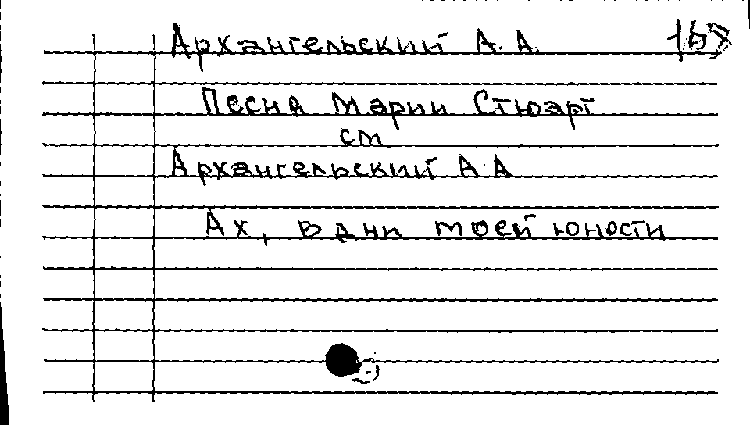 Архангельский А. А.
Песня Марии Стюарт
см
Архангельский А.А
Ах, в дни моей юности